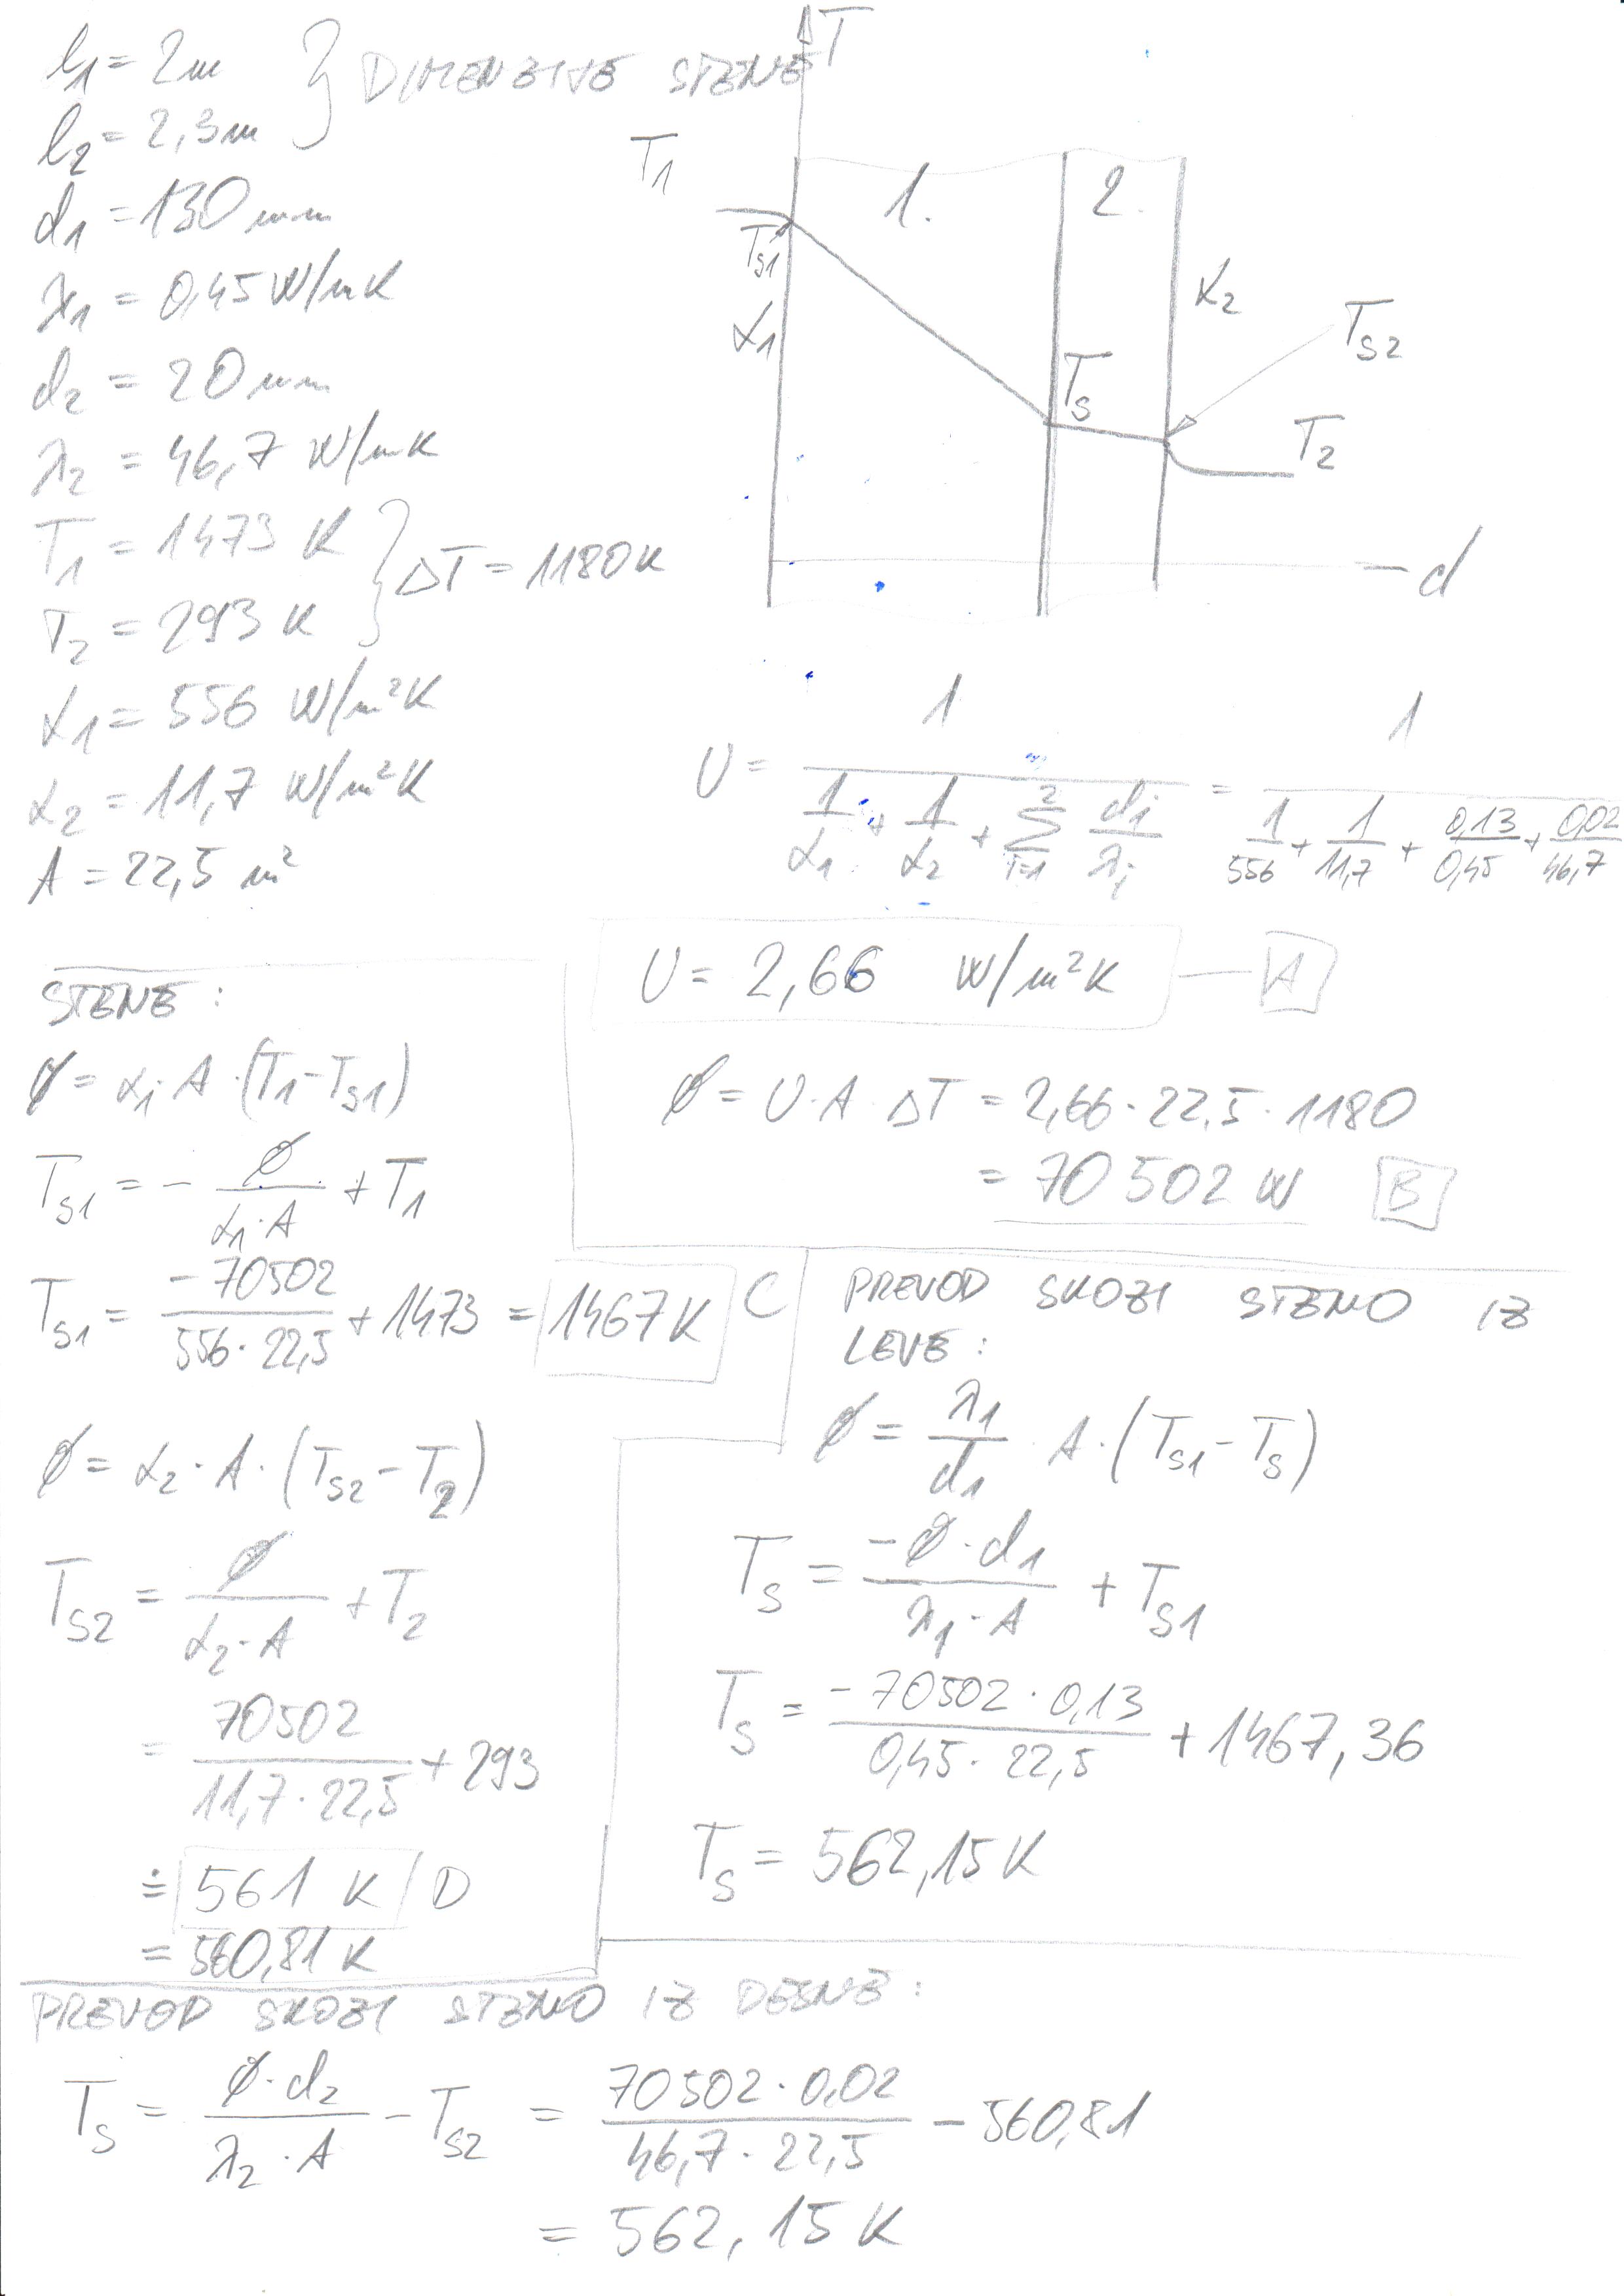 l₁ = 2m } DIMENZIJE STENE
l₂ = 2,3m
d₁ = 130 mm
λ₁ = 0,45 W/mK
d₂ = 20 mm
λ₂ = 46,7 W/mK
T₁ = 1473 K } ΔT = 1180K
T₂ = 293 K
α₁ = 556 W/m²K
α₂ = 11,7 W/m²K
A = 22,5 m²
T
T₁
1.
2.
T_S1
α₁
α₂
T_S2
T_S
T₂
d
U = 1 / (1/α₁ + 1/α₂ + Σ²ᵢ₌₁ dᵢ/λᵢ) = 1 / (1/556 + 1/11,7 + 0,13/0,45 + 0,02/46,7)
U = 2,66 W/m²K — A
ϕ = U·A·ΔT = 2,66·22,5·1180
= 70 502 W B
STENE:
ϕ = α₁·A·(T₁-T_S1)
T_S1 = - ϕ/(α₁·A) + T₁
T_S1 = -70502/(556·22,5) + 1473 = 1467K C
ϕ = α₂·A·(T_S2-T₂)
T_S2 = ϕ/(α₂·A) + T₂
= 70502/(11,7·22,5) + 293
≐ 561 K D
= 560,81 K
PREVOD SKOZI STENO IZ
LEVE:
ϕ = λ₁/d₁ · A·(T_S1-T_S)
T_S = -ϕ·d₁/(λ₁·A) + T_S1
T_S = -70502·0,13/(0,45·22,5) + 1467,36
T_S = 562,15 K
PREVOD SKOZI STENO IZ DESNE:
T_S = ϕ·d₂/(λ₂·A) - T_S2 = 70502·0,02/(46,7·22,5) - 560,81
= 562,15 K